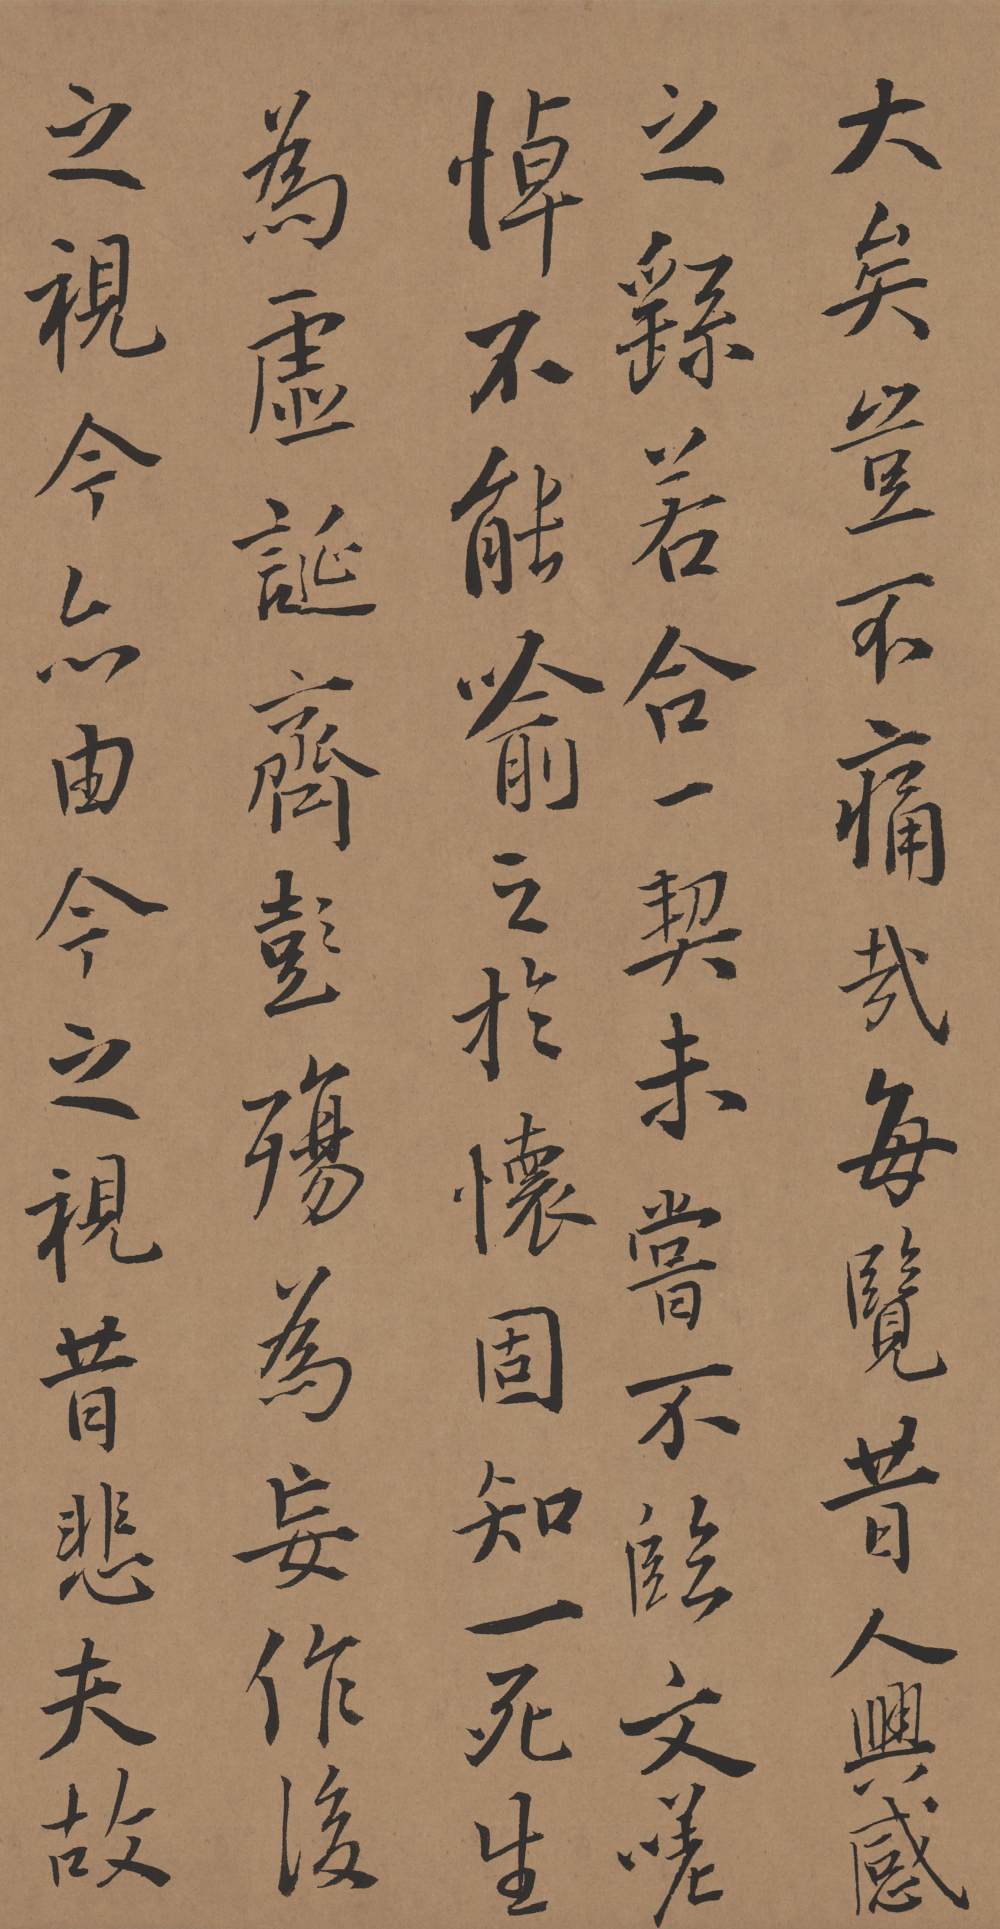 大矣豈不痛哉每覽昔人興感
之繇若合一契未嘗不臨文嗟
悼不能喻之於懷固知一死生
為虛誕齊彭殤為妄作後
之視今亦由今之視昔悲夫故